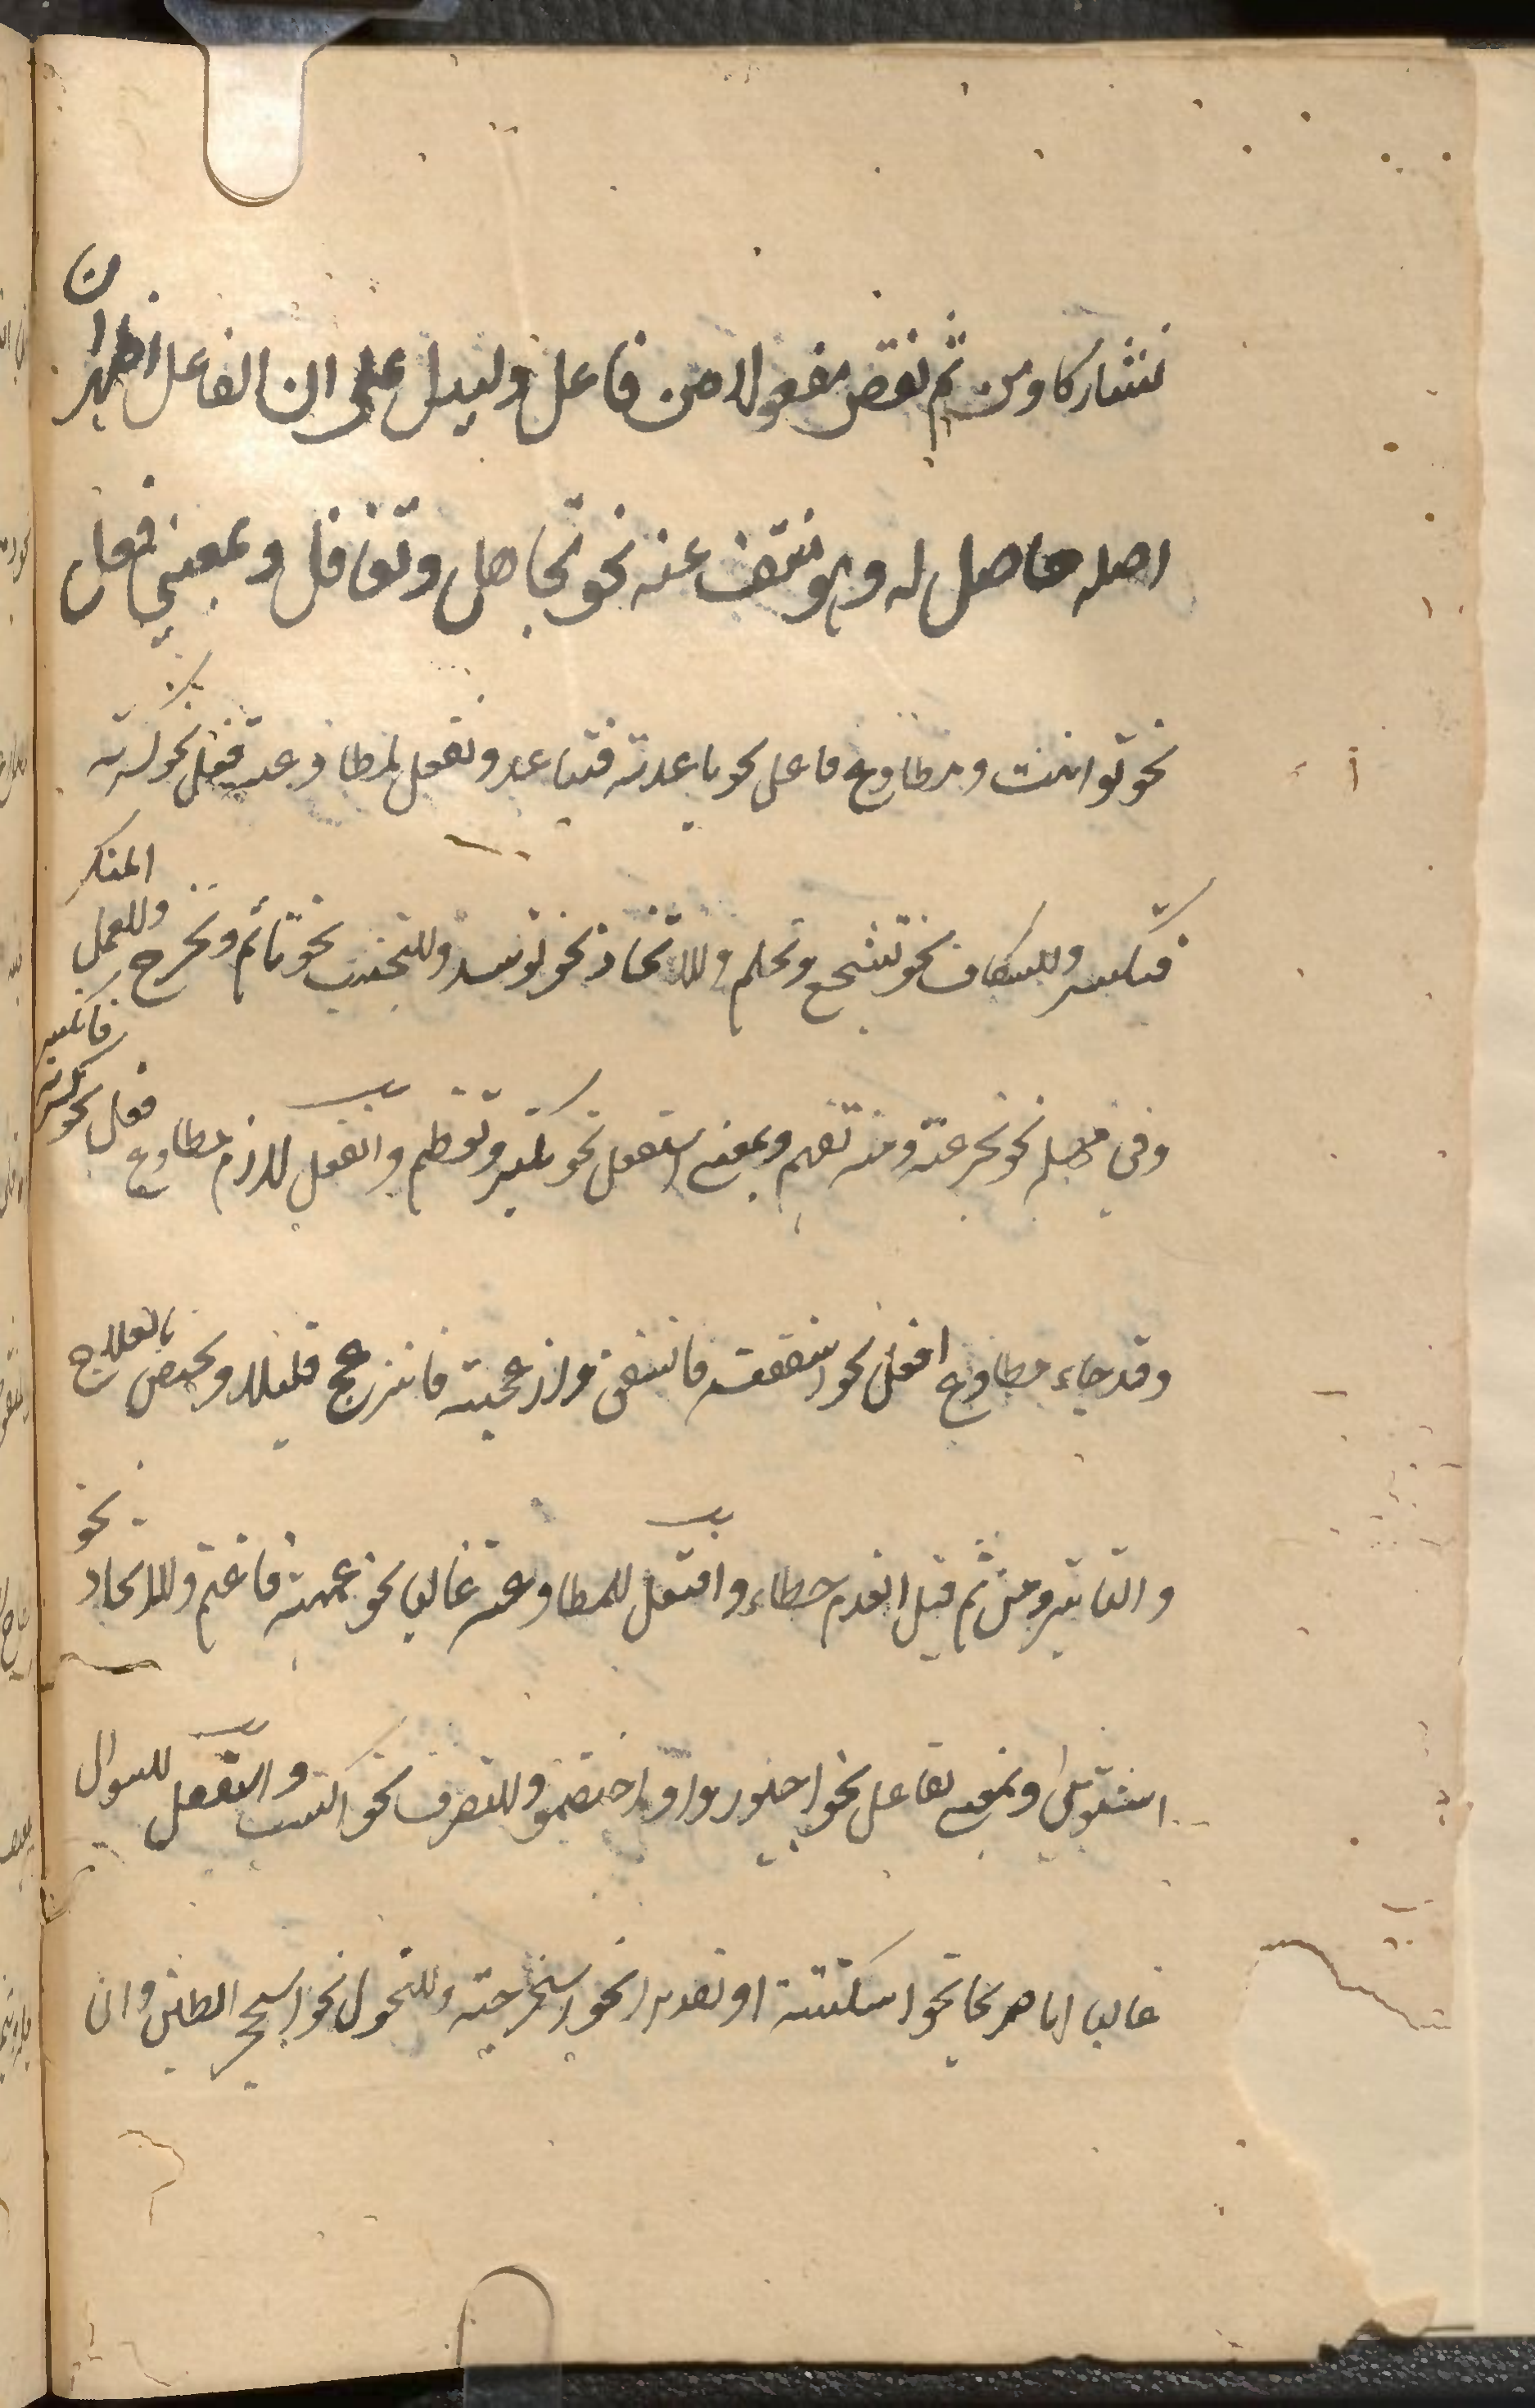 تشاركا ومن ثم نقص مفعولا من فاعل وليدل على ان الفاعل اظهر ان
اصله حاصل له وهو منتف عنه نحو تجاهل وتغافل وبمعنى فعل
نحو توانيت ومطاوع فاعل نحو باعدته فتباعد وتفعل لمطاوعة فعل نحو كسرته
فتكسر وللتكلف نحو تشجع وتحلم وللاتخاذ نحو توسد وللتجنب نحو تأثم وتحرج وللعمل المتكرر
في مهلة نحو تجرعته ومنه تفهم وبمعنى استفعل نحو تكبر وتعظم وانفعل لازم مطاوع فعل نحو كسرته فانكسر
وقد جاء مطاوع افعل نحو اسفقته فانسفق وازعجته فانزعج قليلا ويختص بالعلاج
والتاثير ومن ثم قيل انعدم خطاء وافتعل للمطاوعة غالبا نحو غممته فاغتم وللاتخاذ نحو
اشتوى وبمعنى تفاعل نحو اجتوروا واختصموا وللتصرف نحو اكتسب واستفعل للسوال
غالبا اما صريحا نحو استكتبته او تقديرا نحو استخرجته وللتحول نحو استحجر الطين وان